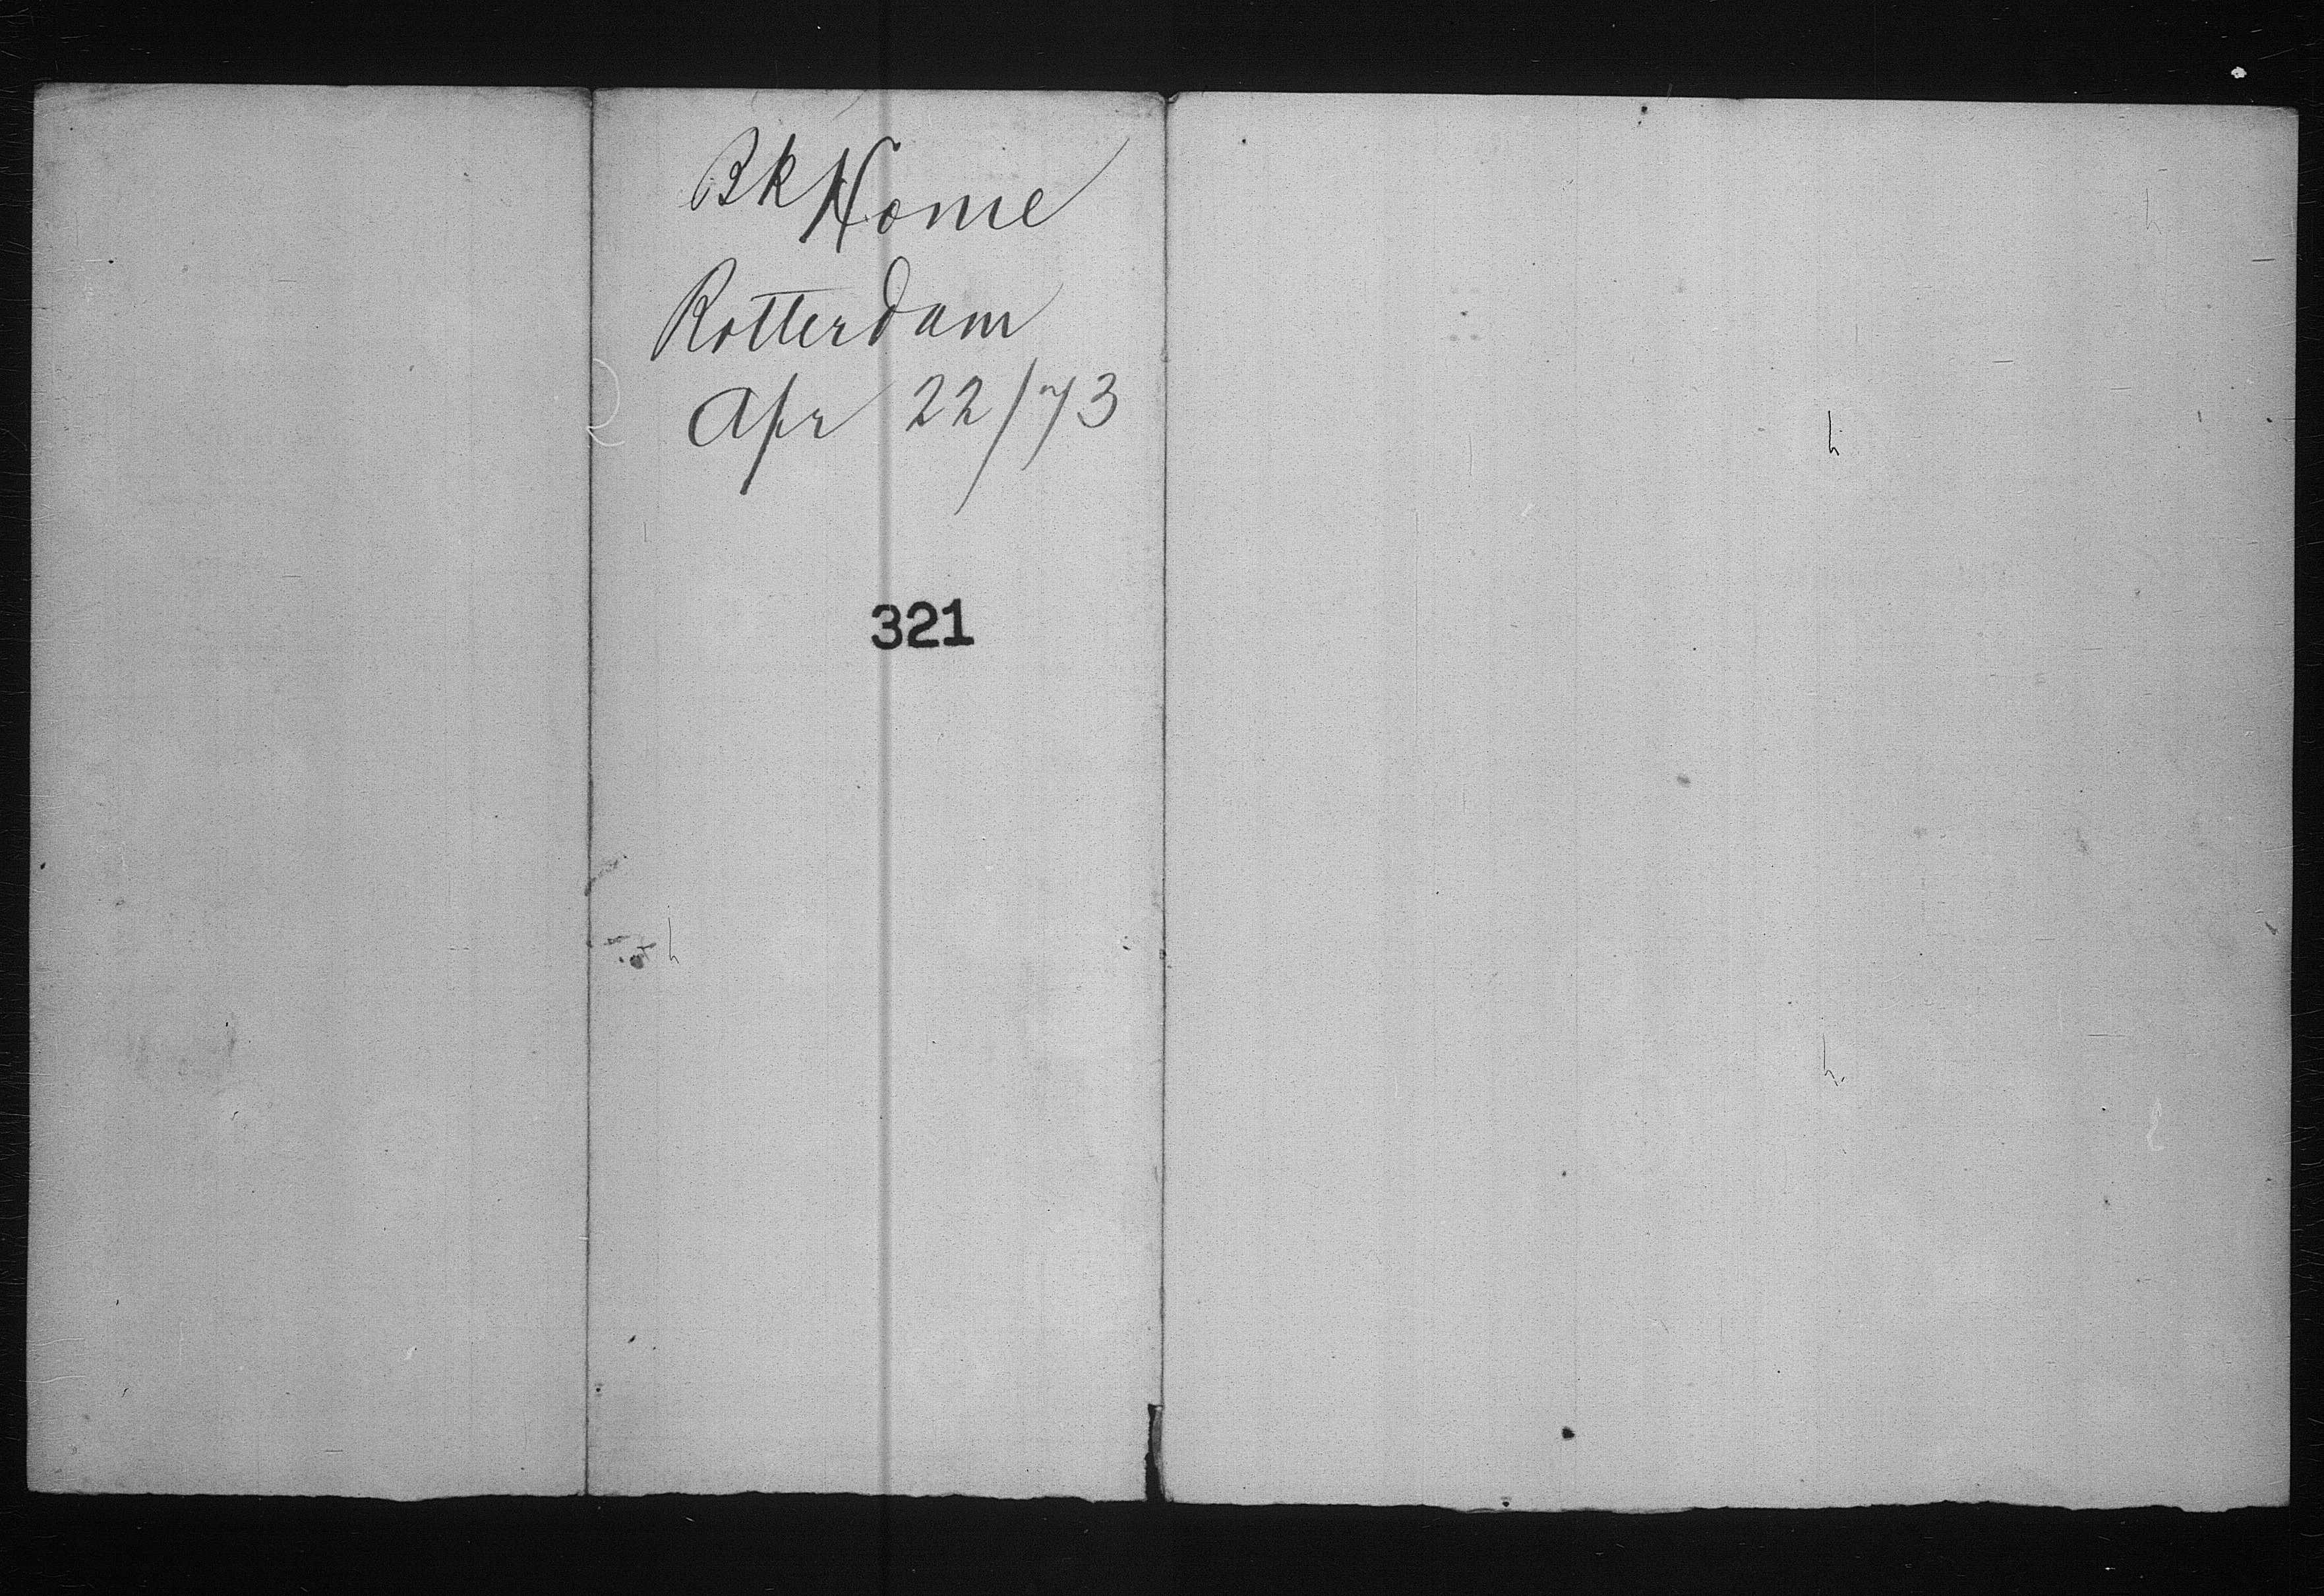 Bk Home
Rotterdam
Apr 22/73
321